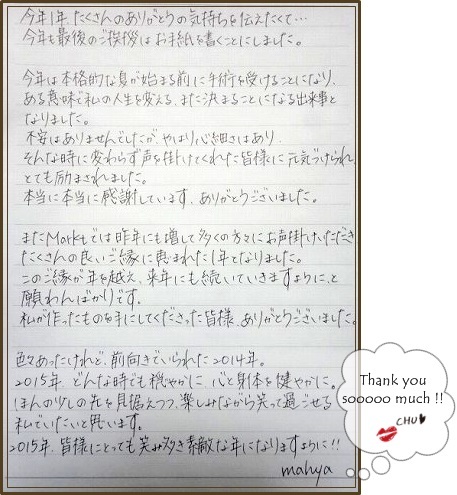 今年1年、たくさんのありがとうの気持ちを伝えたくて…
今年も最後のご挨拶はお手紙を書くことにしました。
今年は本格的な夏が始まる前に手術を受けることになり、
ある意味で私の人生を変える、また決まることになる出来事と
なりました。
不安はありませんでしたが、やはり心細さはあり、
そんな時に変わらず声を掛けてくれた皆様に元気づけられ、
とても励まされました。
本当に本当に感謝しています。ありがとうございました。
またMarkもでは昨年にも増して多くの方々にお声掛けいただき
たくさんの良いご縁に恵まれた1年となりました。
このご縁が年を越え、来年にも続いていきますように、と
願わんばかりです。
私が作ったものを手にしてくださった皆様、ありがとうございました。
色々あったけれど、前向きでいられた2014年。
2015年、どんな時でも穏やかに、心と身体を健やかに。
ほんの少しの先を見据えつつ、楽しみながら笑って過ごせる
私でいたいと思います。
2015年、皆様にとっても笑み多き素敵な年になりますように!!
mahya
Thank you
sooooo much !!
CHU♥